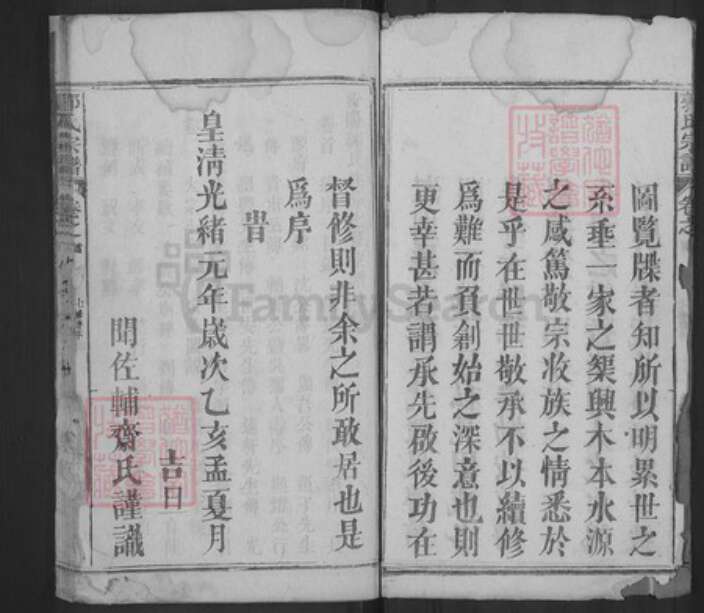 圖覽牒者知所以明累世之
系垂一家之榘興木本水源
之感篤敬宗收族之情悉於
是乎在世世敬承不以續修
爲難而負創始之深意也則
更幸甚若謂承先啟後功在
督修則非余之所敢居也是
爲序
旹
皇清光緒元年歲次乙亥孟夏月
吉日
聞佐輔齋氏謹識
氏宗譜
FamilySearch